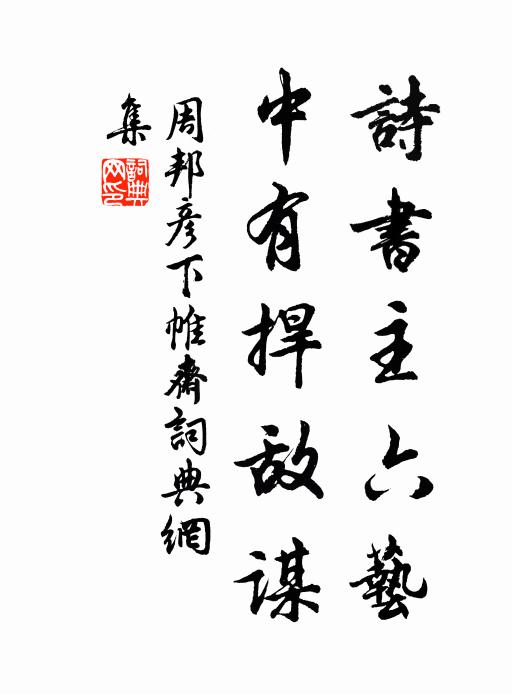 詩書主六藝
中有捍敌謀
周邦彦下帷齋詞典網
集
詞典
网印